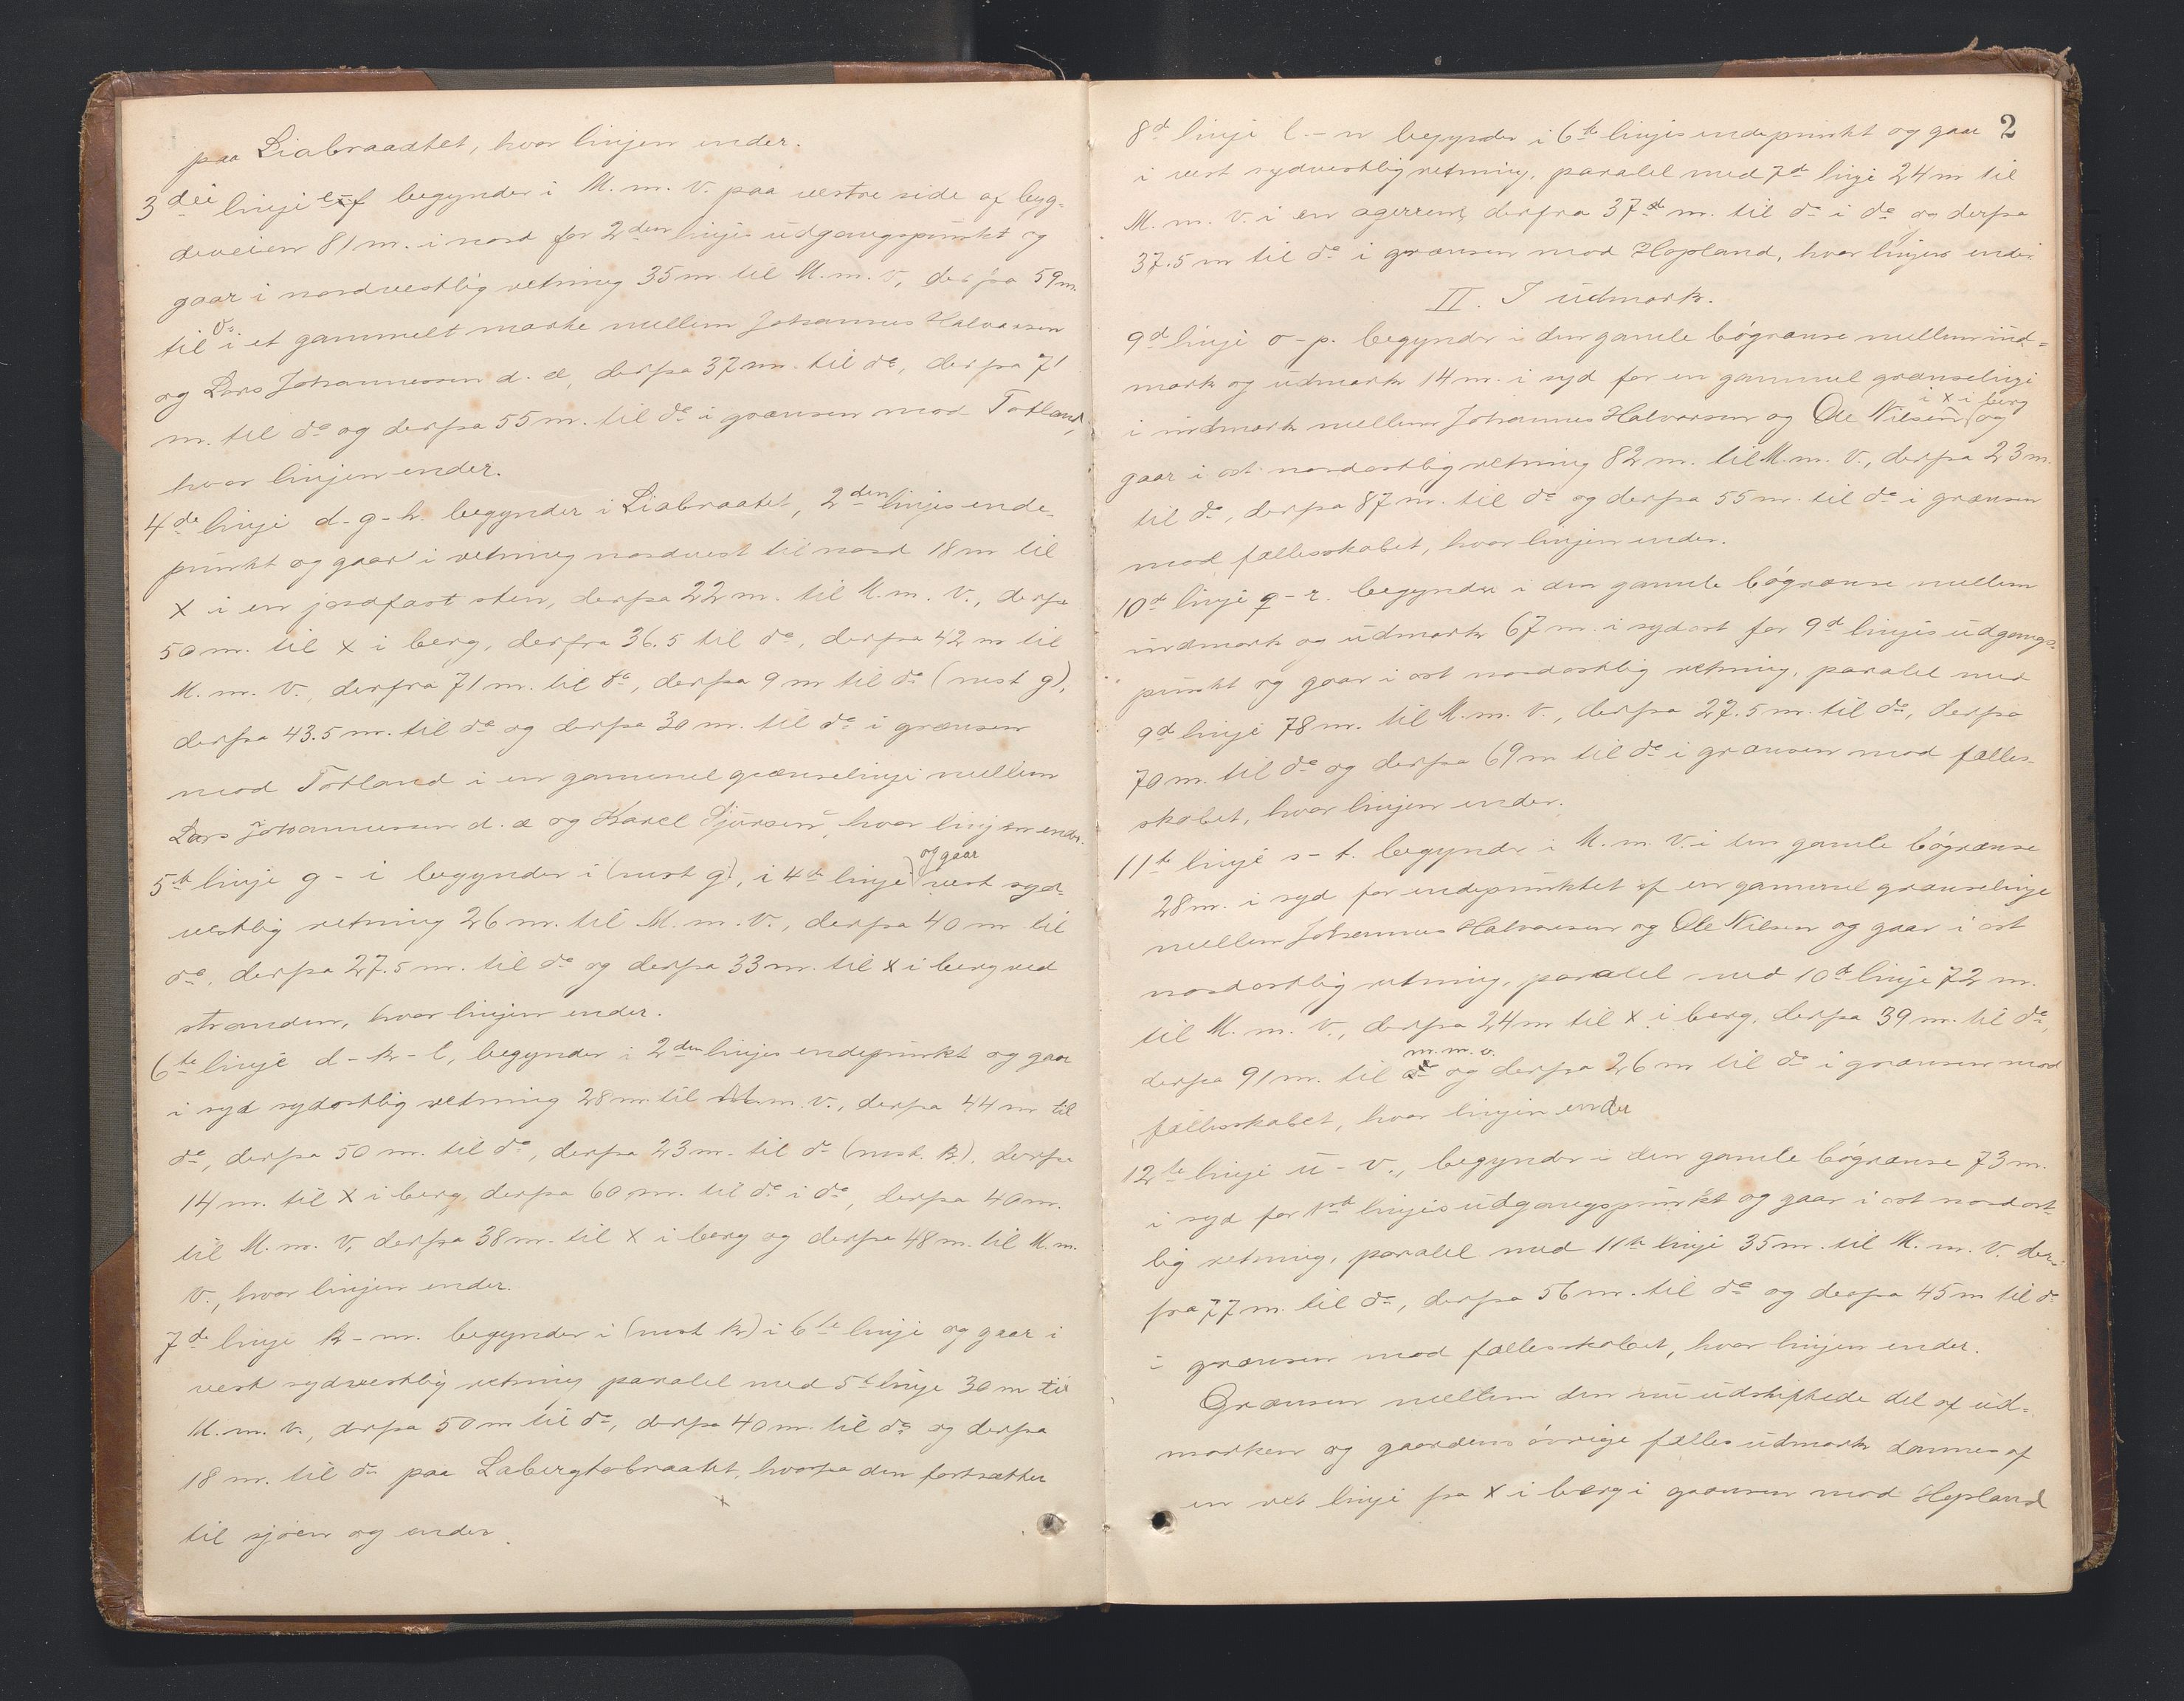 paa Liabraadtet, hvor linjen ender.
3die linje e-f begynder i M. m. V. paa vestre side af byg-
deveien 81 m. i nord for 2den linjes udgangspunkt og
gaar i nordvestlig retning 35 m. til M. m. V., derfra 59 m.
til do i et gammelt marke mellem Johannes Halvorsen
og Lars Johannessen d. æ, derfra 37 m. til do, derfra 71
m. til do og derfra 55 m. til do i grænsen mod Totland,
hvor linjen ender.
4de linje d-g-h. begynder i Liabraatet, 2den linjes ende-
punkt og gaar i retning nordvest til nord 18 m til
X i en jordfast sten, derfra 22 m. til M. m. V., derfra
50 m. til X i berg, derfra 36.5 til do, derfra 42 m til
M. m. V., derfra 71 m. til do, derfra 9 m til do (mrst g),
derfra 43.5 m. til do og derfra 30 m. til do i grænsen
mod Totland i en gammel grænselinje mellem
Lars Johannessen d. æ og Karel Sjursen, hvor linjen ender.
5te linje g - i begynder i (mrst g), i 4de linje og gaar vest syd-
vestlig retning 26 m. til M. m. V., derfra 40 m til
do, derfra 27.5 m. til do og derfra 33 m. til X i berg ved
stranden, hvor linjen ender.
6te linje d-k-l, begynder i 2den linjes endepunkt og gaar
i syd sydostlig retning 28 m til M. m. v., derfra 44 m til
do, derfra 50 m. til do, derfra 23 m. til do (mrst. k), derfra
14 m. til X i berg derfra 60 m. til do i do, derfra 40 m.
til M. m. V, derfra 38 m. til X i berg og derfra 48 m. til M. m.
V., hvor linjen ender.
7de linje k-m. begynder i (mrst k) i 6te linje og gaar i
vest sydvestlig retning paralel med 5te linje 30 m til
M. m. v., derfra 50 m til do, derfra 40 m. til do og derfra
18 m. til do paa Labergtobraatet, hvorfra den fortsætter
til sjøen og ender.
2
8de linje l-n begynder i 6te linjes endepunkt og gaar
i vest sydvestlig retning, paralel med 7de linje 24 m til
M. m. V. i en agerren, derfra 37 m. til do i do og derfra
37.5 m til do i grænsen mod Hopland, hvor linjen ender.
II. I udmark.
9de linje o-p. begynder i den gamle bøgrænse mellem ind-
mark og udmark 14 m. i syd for en gammel grænselinje
i indmark mellem Johannes Halvorsen og Ole Nilsen i X i berg og
gaar i ost nordostlig retning 82 m. til M. m. V., derfra 23 m.
til do, derfra 87 m. til do og derfra 55 m. til do i grænsen
mod fællesskabet, hvor linjen ender.
10de linje q-r. begynder i den gamle bøgrænse mellem
indmark og udmark 67 m. i sydost for 9de linjes udgangs-
punkt og gaar i ost nordostlig retning, paralel med
9de linje 78 m. til M. m. V., derfra 27.5 m. til do, derfra
70 m. til do og derfra 69 m til do i grænsen mod fælles-
skabet, hvor linjen ender.
11te linje s-t. begynder i M. m. V. i den gamle bøgrænse
28 m. i syd for endepunktet af en gammel grænselinje
mellem Johannes Halvorsen og Ole Nilsen og gaar i ost
nordostlig retning, paralel med 10de linje 72 m.
til M. m. V., derfra 24 m til X i berg, derfra 39 m. til do,
derfra 91 m. til m. m. v. og derfra 26 m til do i grænsen mod
fællesskabet, hvor linjen ender
12te linje u-v., begynder i den gamle bøgrænse 73 m.
i syd for 11te linjes udgangspunkt og gaar i ost nordost-
lig retning, paralel med 11te linje 35 m. til M. m. V. der-
fra 77 m. til do, derfra 56 m. til do og derfra 45 m til do
i grænsen mod fællesskabet, hvor linjen ender.
Grænsen mellem den nu udskiftede del af ud-
marken og gaardens øvrige fælles udmark dannes af
en ret linje fra X i berg i grænsen mod Hopland